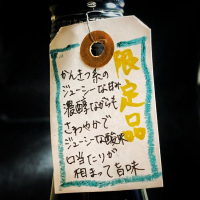 限定品
かんきつ系の
ジューシーな甘み
濃醇ながらも
さわやかで
ジューシーな酸味
口当たりが
相まって旨味